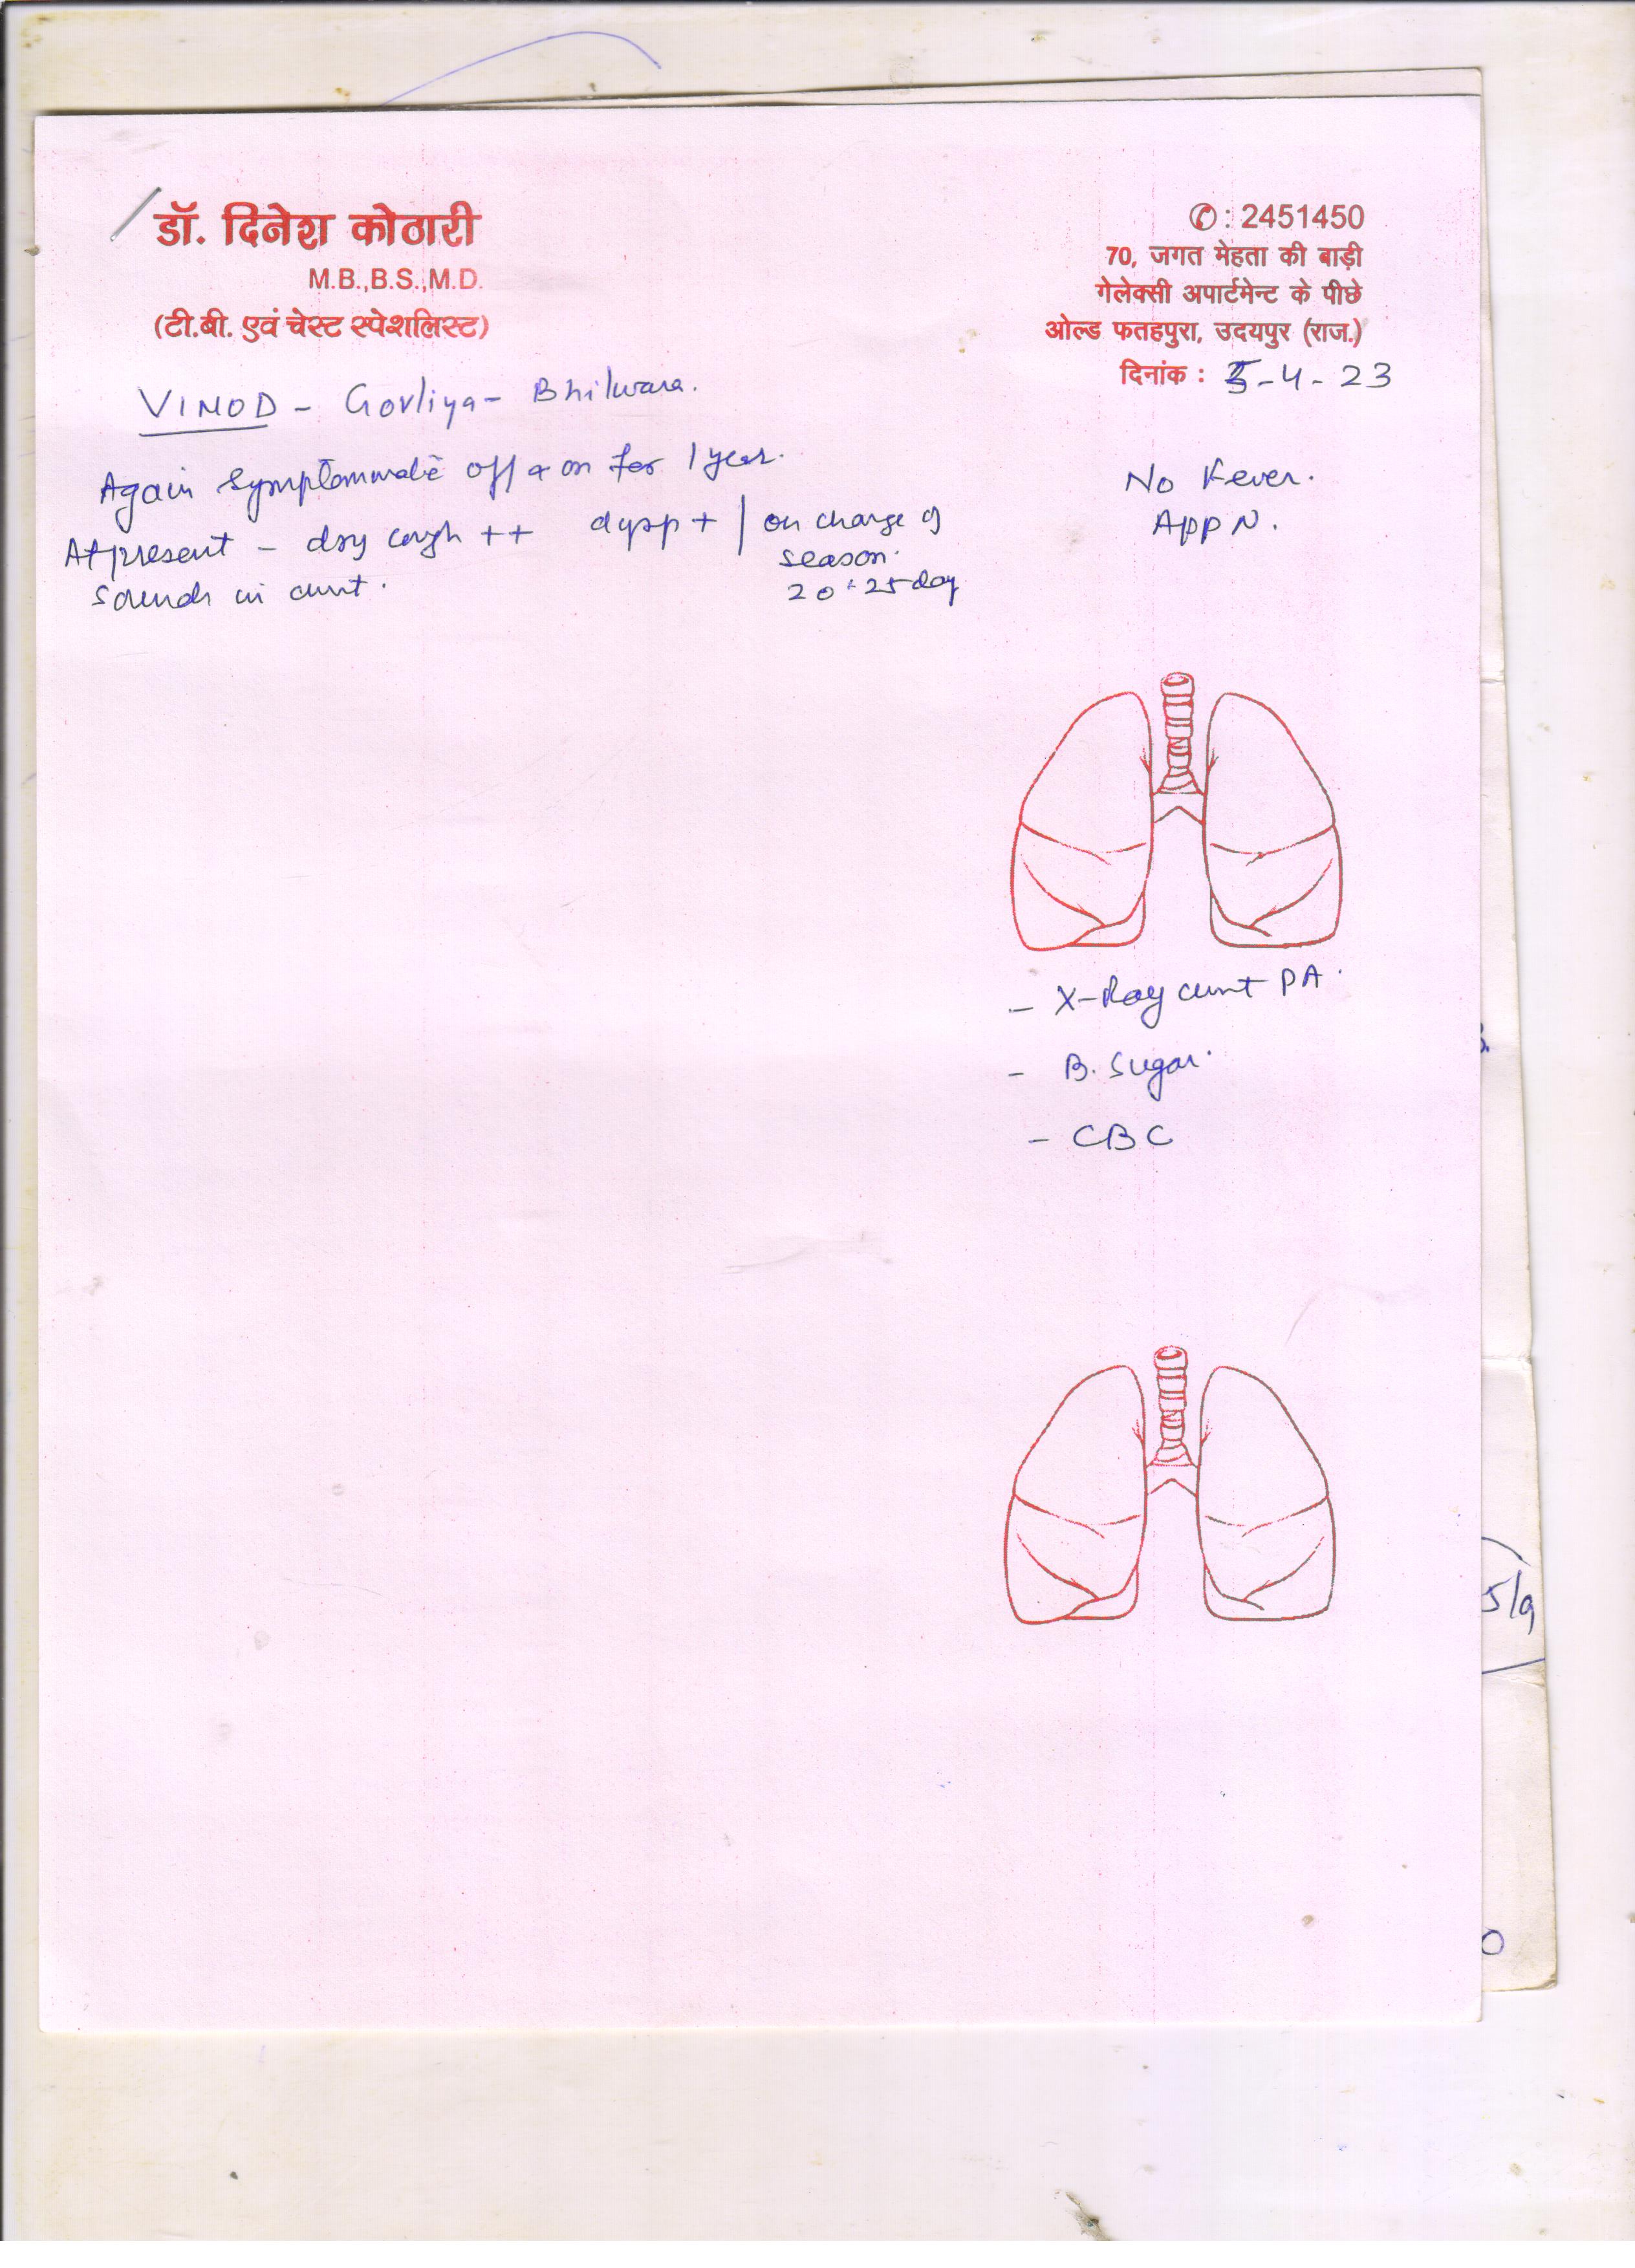 डॉ. दिनेश कोठारी
M.B.,B.S.,M.D.
(टी.बी. एवं चेस्ट स्पेशलिस्ट)
✆ : 2451450
70, जगत मेहता की बाड़ी
गेलेक्सी अपार्टमेन्ट के पीछे
ओल्ड फतहपुरा, उदयपुर (राज.)
दिनांक : 5-4-23
VINOD - Govliya - Bhilwara.
Again Symptommatic off & on for 1 year.
At present - dry cough ++ dysp + | on change of
season.
20-25 day
sounds in chest.
No Fever.
App N.
- X-Ray chest PA.
- B. Sugar.
- CBC
5/9